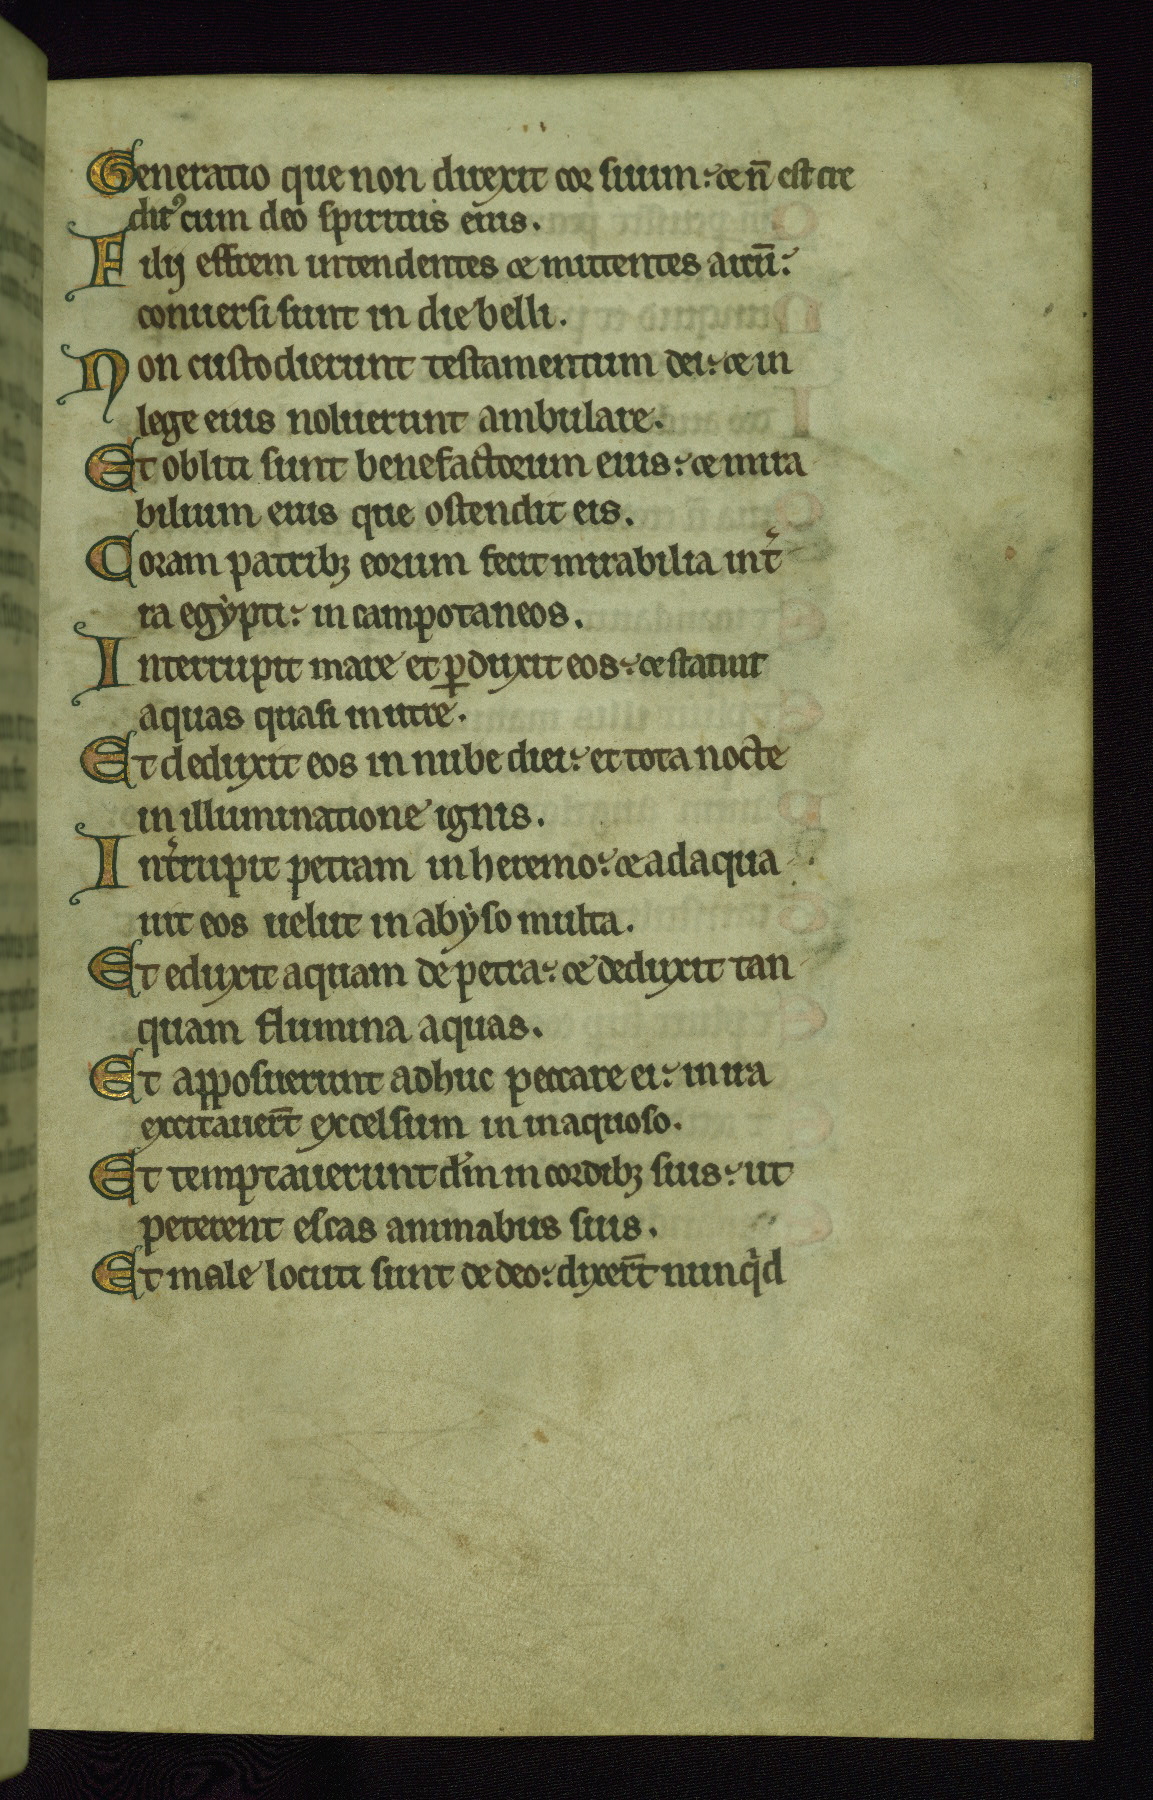 Generatio que non direxit cor suum: ⁊ n̄ est cre
dit᾽ cum deo spiritus eius.
Filij effrem intendentes ⁊ mittentes arcū:
conuersi sunt in die belli.
Non custodierunt testamentum dei: ⁊ in
lege eius noluerunt ambulare.
Et obliti sunt benefactorum eius: ⁊ mira
bilium eius que ostendit eis.
Coram patribꝫ eorum fecit mirabilia in t᾽
ra egẏpti: in campo taneos.
Interrupit mare et ꝑduxit eos: ⁊ statuit
aquas quasi in utre.
Et deduxit eos in nube diei: et tota nocte
in illuminatione ignis.
Int᾽rupit petram in heremo: ⁊ adaqua
uit eos uelut in abẏso multa.
Et eduxit aquam de petra: ⁊ deduxit tan
quam flumina aquas.
Et apposuerunt adhuc peccare ei: in ira
excitauer̄t excelsum in inaquoso.
Et temptauerunt dm̄ in cordibꝫ suis: ut
peterent escas animabus suis.
Et male locuti sunt de deo: dixer̄t nunqͥd